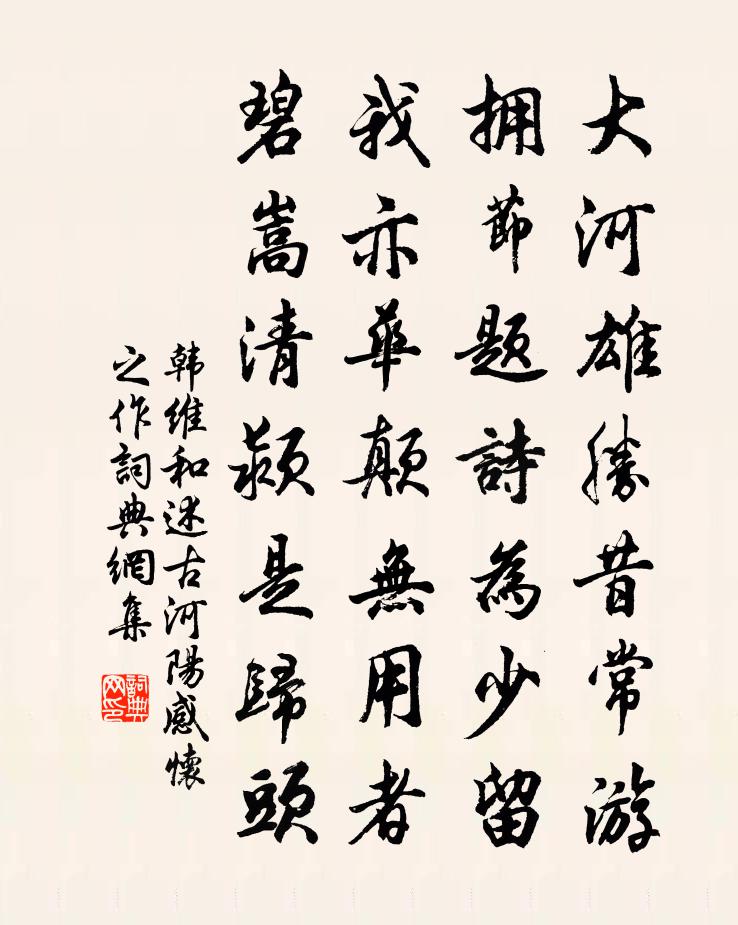 大河雄勝昔常游
拥節题詩為少留
我亦華顛無用者
碧嵩清颍是歸頭
韩维和述古河陽感懷
之作詞典網集
詞典网印